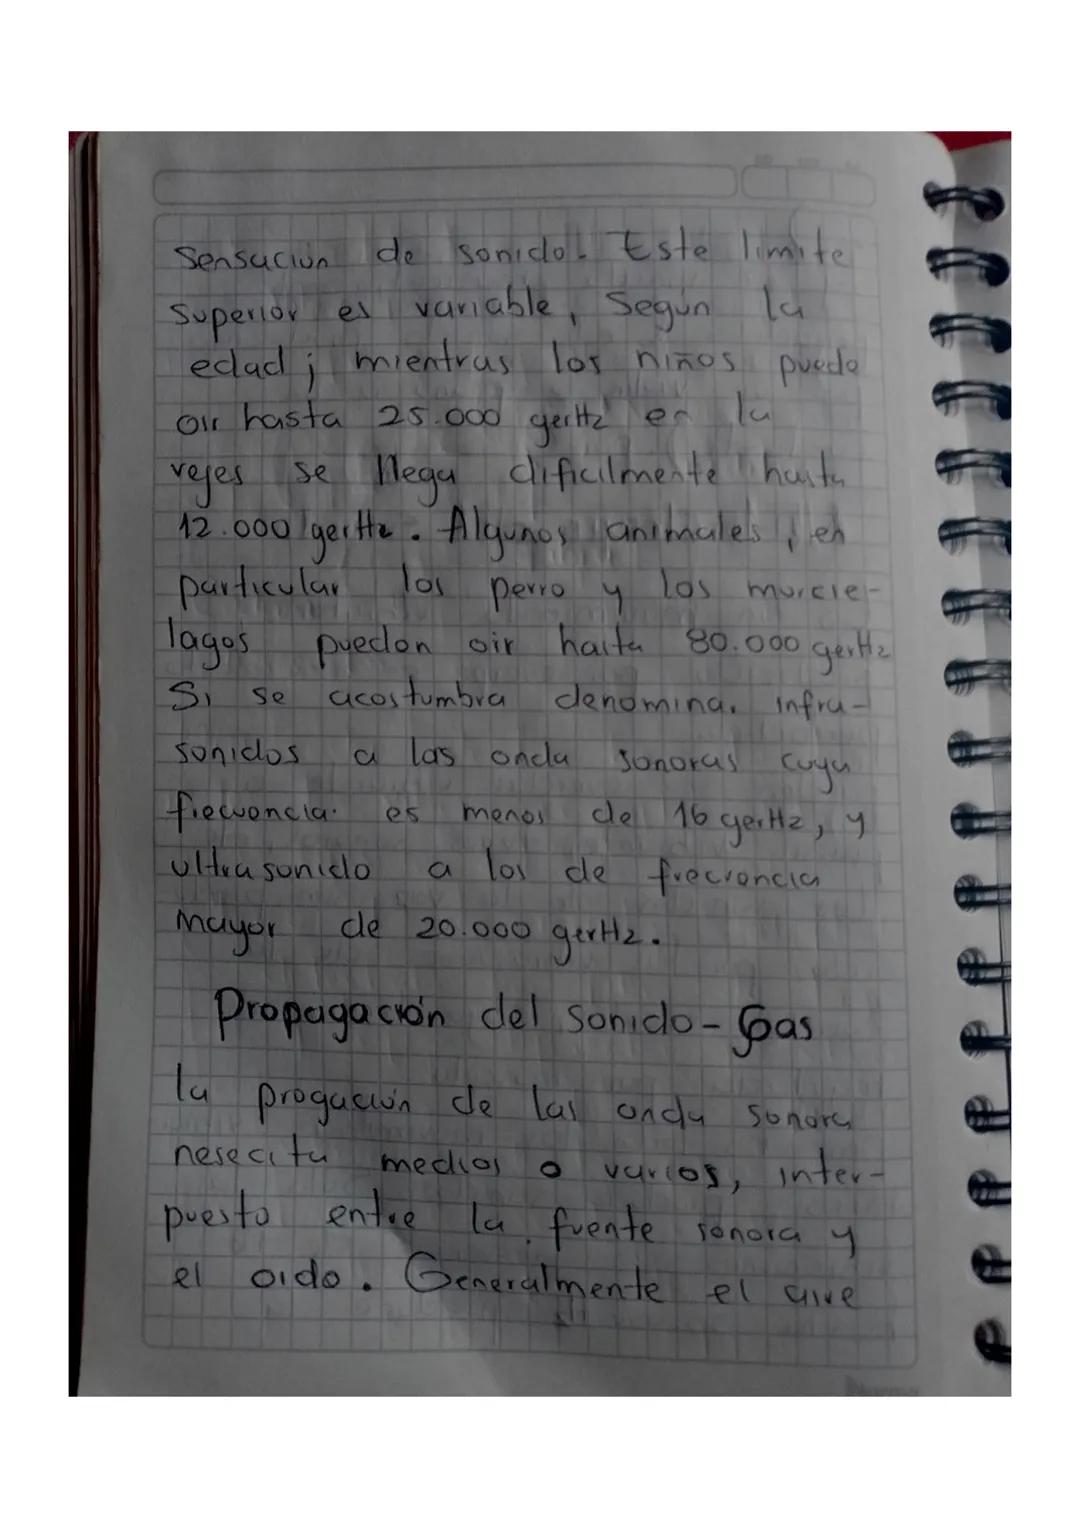 Sensaciun de sonido. Este limite
Superior es variable, Según la
edad; mientras los niños puede
oir hasta 25.000 gertz en la
vejes se llega dificilmente hasta
12.000 gertz. Algunos animales, en
particular los perro y los murcie-
lagos pueden oir hasta 80.000 gertz
Si se acostumbra denomina. infra-
sonidos a las onda sonoras cuya
frecuencia. es menos de 16 gertz, y
ultrasonido a los de frecuencia
mayor de 20.000 gertz.
Propagación del sonido-Gas
la progación de las onda sonora
nesecita medios o varios, inter-
puesto entre la fuente sonora y
el oido. Generalmente el aire
Norma